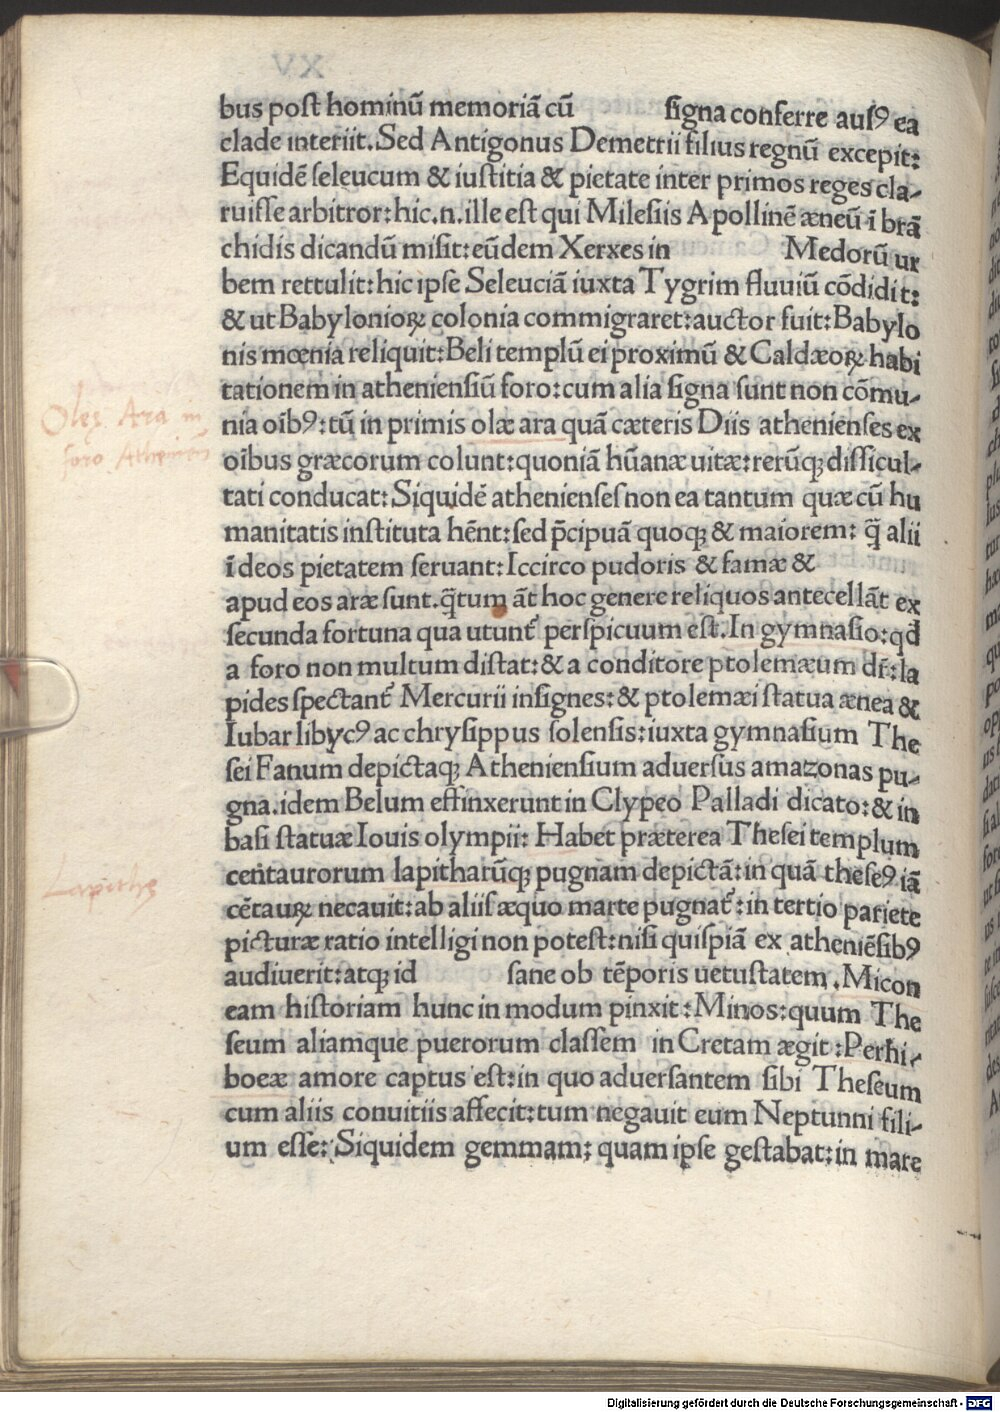 bus poſt hominū memoriā cū ſigna conferre auſꝰ ea
clade interiit. Sed Antigonus Demetrii filius regnū excepit:
Equidē ſeleucum & iuſtitia & pietate inter primos reges cla-
ruiſſe arbitror: hic .n. ille eſt qui Mileſiis Apollinē æneū ī brā
chidis dicandū miſit: eūdem Xerxes in Medorū ur
bem rettulit: hic ipſe Seleuciā iuxta Tygrim fluuiū cōdidit:
& ut Babylonioꝝ colonia commigraret: auctor fuit: Babylo
nis mœnia reliquit: Beli templū ei proximū & Caldæoꝝ habi
tationem in athenienſiū foro: cum alia ſigna ſunt non cōmu-
nia oībꝰ: tū in primis olæ ara quā cæteris Diis athenienſes ex
oībus græcorum colunt: quoniā hūanæ uitæ: rerūqꝫ difficul-
tati conducat: Siquidē athenienſeſ non ea tantum quæ cū hu
manitatis inſtituta hēnt: ſed p̄cipuā quoqꝫ & maiorem: q̄ alii
ī deos pietatem ſeruant: Iccirco pudoris & famæ &
apud eos aræ ſunt. q̄tum āt hoc genere reliquos antecellāt ex
ſecunda fortuna qua utunt᷑ perſpicuum eſt. In gymnaſio: qd̄
a foro non multum diſtat: & a conditore ptolemæum dr̄: la
pides ſpectant᷑ Mercurii inſignes: & ptolemæi ſtatua ænea &
Iubar libycꝰ ac chryſippus ſolenſis: iuxta gymnaſium The
ſei Fanum depictaqꝫ Athenienſium aduerſus amazonas pu-
gna. idem Belum effinxerunt in Clypeo Palladi dicato: & in
baſi ſtatuæ Iouis olympii: Habet præterea Theſei templum
centaurorum lapitharūqꝫ pugnam depictā: in quā theſeꝰ iā
cētauꝝ necauit: ab aliiſ æquo marte pugnat᷑: in tertio pariete
picturæ ratio intelligi non poteſt: niſi quiſpiā ex atheniēſibꝰ
audiuerit: atqꝫ id ſane ob tēporis uetuſtatem. Micon
eam hiſtoriam hunc in modum pinxit: Minos: quum The
ſeum aliamque puerorum claſſem in Cretam ægit: Perhi-
boeæ amore captus eſt: in quo aduerſantem ſibi Theſeum
cum aliis conuitiis affecit: tum negauit eum Neptunni fili-
um eſſe: Siquidem gemmam; quam ipſe geſtabat: in mare
Oleę Ara in
foro Atheniens
Lapithę
Digitalisierung gefördert durch die Deutsche Forschungsgemeinschaft - DFG